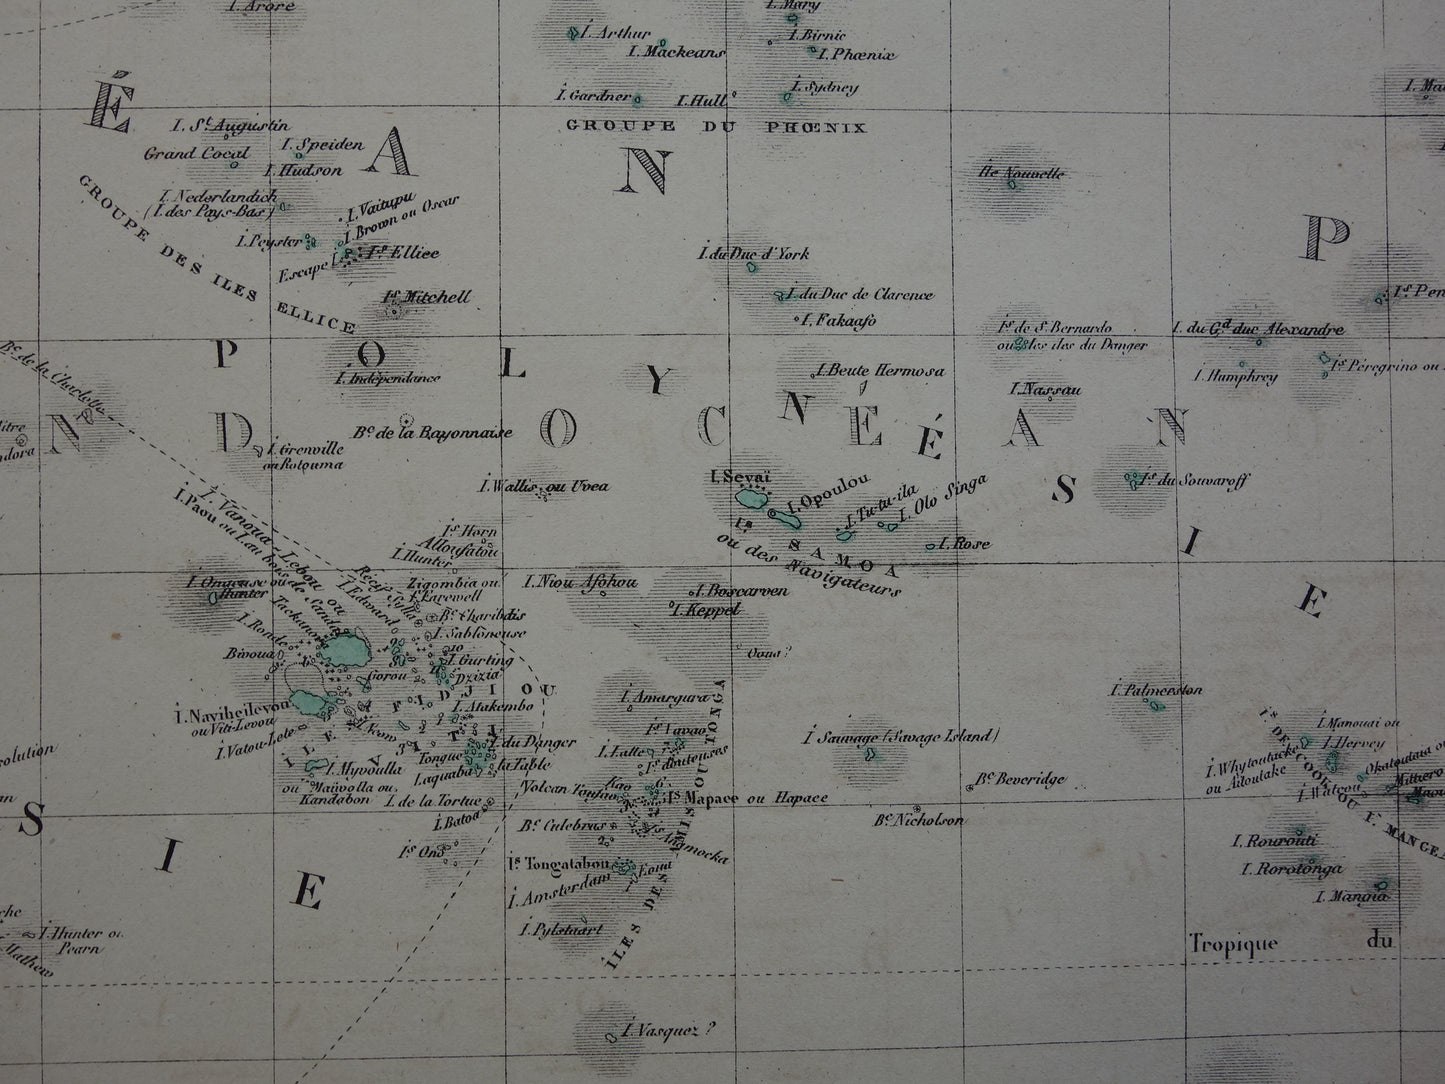 I. Arore
I. Arthur
I. Mackeans
I. Mary
I. Birnie
I. Phœnix
I. Gardner
I. Hull
I. Sydney
GROUPE DU PHŒNIX
É
A
N
P
I. St. Augustin
Grand Cocal
I. Speiden
I. Hudson
I. Nederlandich
(I. des Pays-Bas)
I. Vaitupu
I. Brown ou Oscar
I. Peyster
Escape I.
Is. Ellice
Is. Mitchell
GROUPE DES ILES ELLICE
Ile Nouvelle
I. du Duc d'York
I. du Duc de Clarence
I. Fakaafo
Is. de S. Bernardo
ou Is. les iles du Danger
I. du Gd. duc Alexandre
I. Humphrey
Is. Péregrino ou
Is. Pen
Bc. de la Charlotte
P O L Y N É S I E
I. Indépendance
I. Beute Hermosa
I. Nassau
N D O C É A N
Bc. de la Bayonnaise
I. Grenville
ou Rotouma
I. Wallis ou Uvea
I. Sevaï
I. Opoulou
I. Tu-tu-ila
I. Olo Singa
I. Rose
Is. SAMOA
ou des Navigateurs
Is. du Souvaroff
I. Vanoua-Lebou ou
I. Paou ou I. au bois de Sandal
Tackanova
Is. Horn
Alloufatou
I. Hunter
Récif Sylla
I. Edward
Zigombia ou
f. Farewell
Bc. Charibdis
I. Sabloneuse
I. Onaeuse ou
Hunter
I. Ronde
Bivoua
I. Gurting
Dzizia
Gorou
I. Niou Afohou
I. Boscarven
I. Keppel
Oona?
I. Naviheilevou
ou Viti-Levou
I. Vatou-Lele
ILES VITI
FIDJI OU
I. Atakembo
I. du Danger
la Table
Tongue
Laguaba
I. Myvoulla
ou Maiivolla ou
Kandabon
I. de la Tortue
I. Batoa
Is. Ono
I. Amargura
Is. Vavao
I. Latte
Is. douteuses
Volcan Toufoa
Kao
Is. Mapace ou Hapace
Bc. Culebras
Is. Anamocka
Is. Tongatabou
I. Amsterdam
Eoua
I. Pylstaart
ILES DES AMIS OU TONGA
I. Vasquez?
I. Sauvage (Savage Island)
Bc. Beveridge
Bc. Nicholson
I. Palmerston
I. Manouai ou
I. Hervey
I. Whytoutacke
ou Aïtoutake
I. Wateou
Okatoutaia ou
Mittiero
Is. DE COOK OU I. MANGE
I. Rourouti
I. Rorotonga
I. Mangia
Tropique du
S I E
I. Hunter ou
Fearn
Mathew